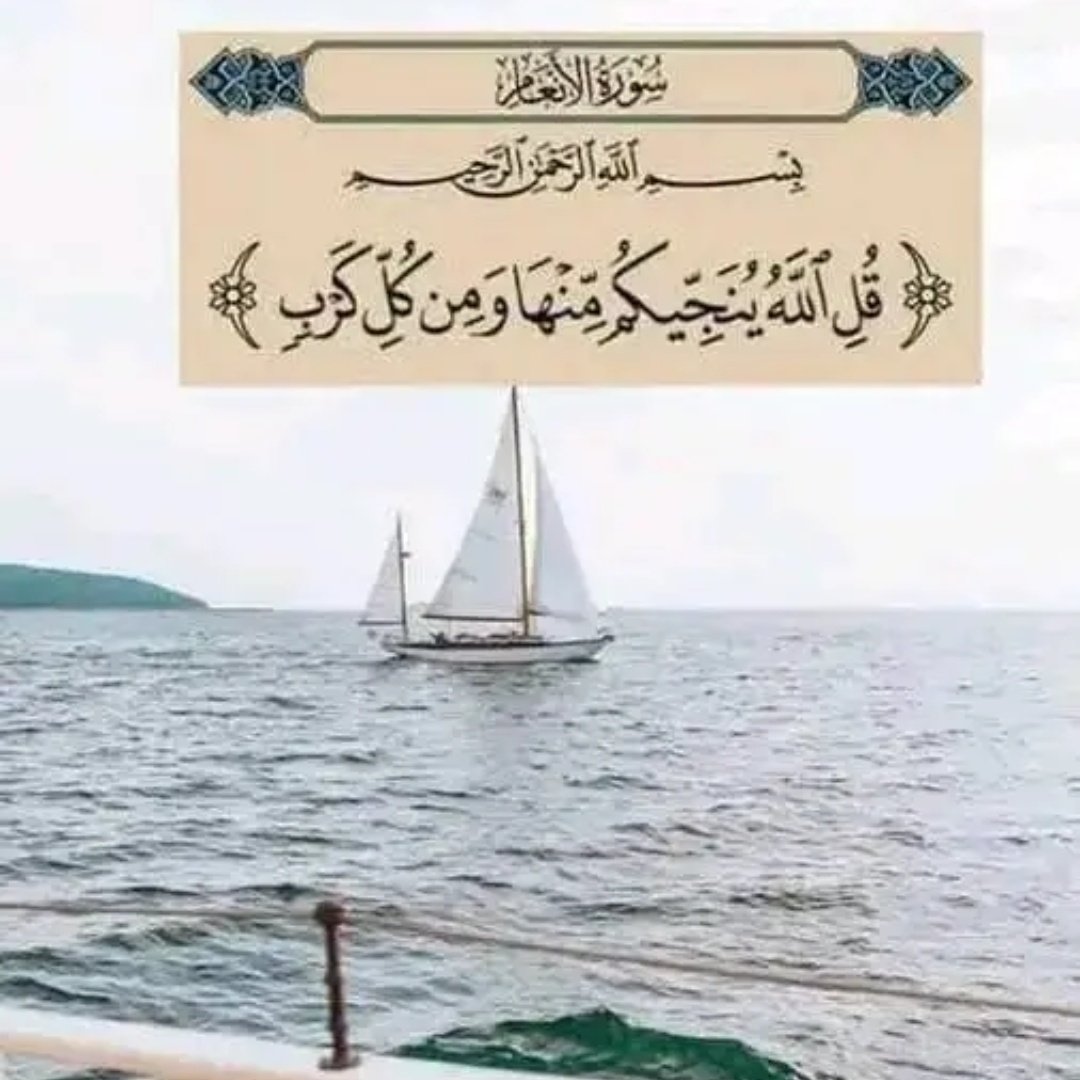 سُورَةُ الأَنْعَامِ
بِسْمِ ٱللَّهِ ٱلرَّحْمَٰنِ ٱلرَّحِيمِ
﴿ قُلِ ٱللَّهُ يُنَجِّيكُم مِّنْهَا وَمِن كُلِّ كَرْبٍ ﴾